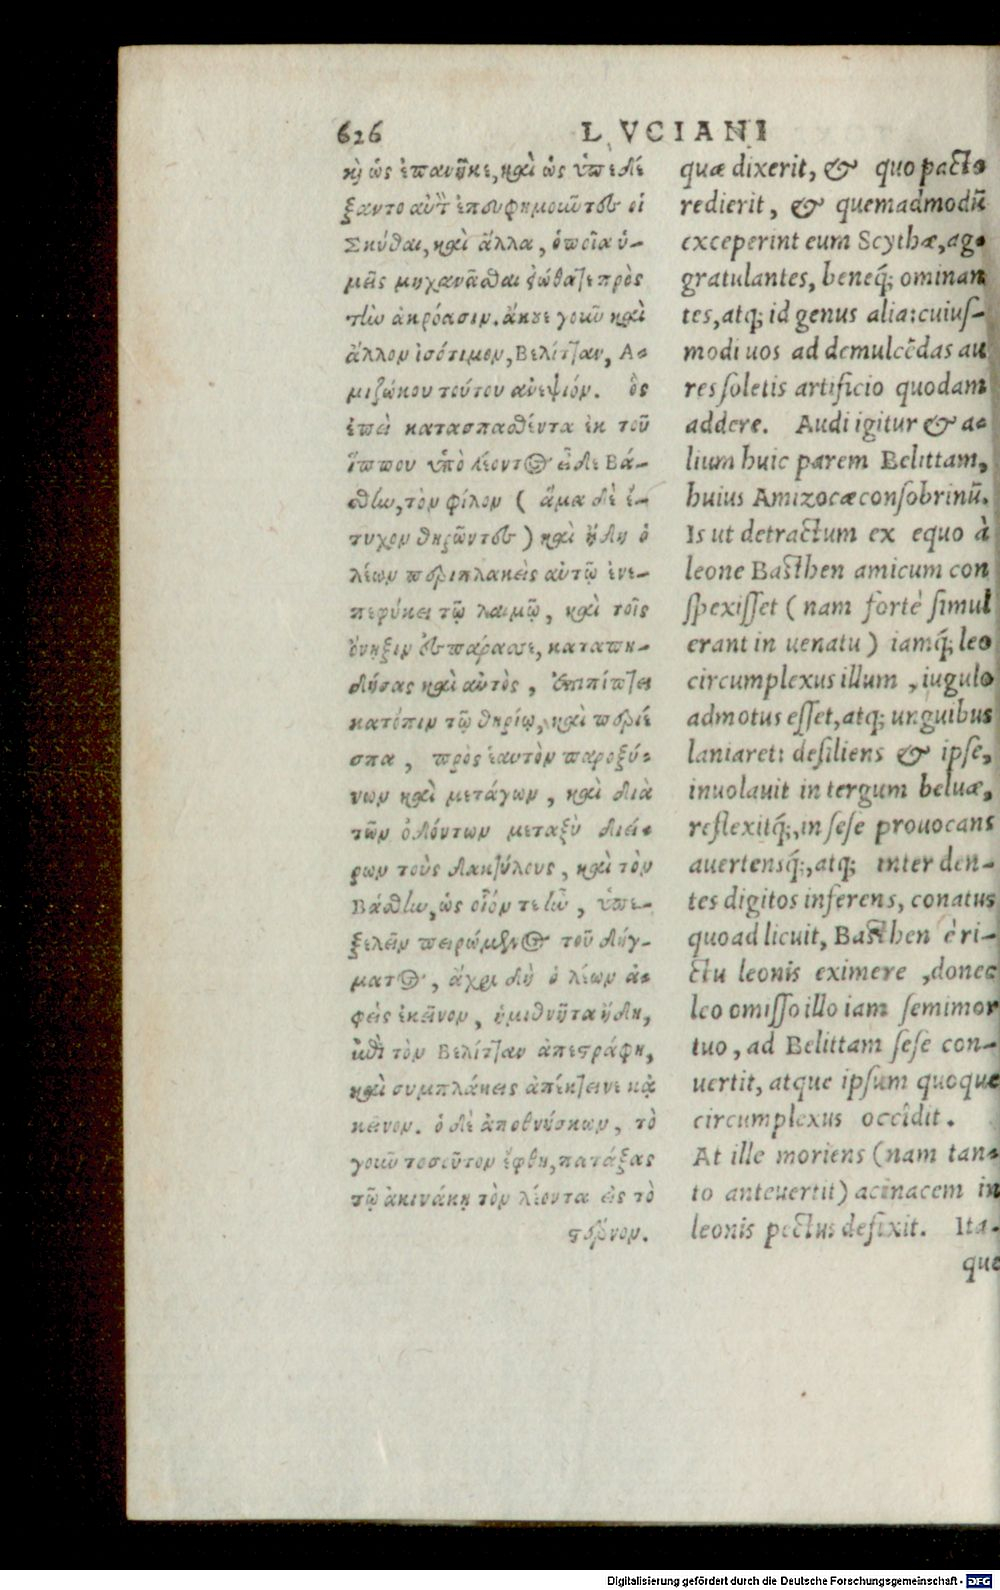 626
LVCIANI
κὶ ὡς ἐπανῆκε, καὶ ὡς ὑπεδέ
ξαντο αὐτὸν ἐπευφημοῦντες οἱ
Σκύθαι, καὶ ἄλλα, ὁποῖα ὑ-
μεῖς μηχανᾶσθαι εἰώθατε πρὸς
τὴν ἀκρόασιν. ἄκουε γοῦν καὶ
ἄλλον ἰσότιμον, Βελίτταν, Α-
μιζώκου τούτου ἀνεψιόν. ὃς
ἐπεὶ κατασπασθέντα ἐκ τοῦ
ἵππου ὑπὸ λέοντος εἶδε Βά-
σθην, τὸν φίλον ( ἅμα δὲ ἐ-
τυχον θηρῶντες ) καὶ ἤδη ὁ
λέων περιπλακεὶς αὐτῷ ἐνε-
πεφύκει τῷ λαιμῷ, καὶ τοῖς
ὄνυξιν ἐσπάρασσε, καταπη-
δήσας καὶ αὐτὸς, ἐμπίπτει
κατόπιν τῷ θηρίῳ, καὶ περιέ
σπα, πρὸς ἑαυτὸν παροξύ-
νων καὶ μετάγων, καὶ διὰ
τῶν ὀδόντων μεταξὺ διεί-
ρων τοὺς δακτύλους, καὶ τὸν
Βάσθην, ὡς οἷόν τε ἦν, ὑπε-
ξελεῖν πειρώμενος τοῦ δήγ-
ματος, ἄχρι δὴ ὁ λέων ἀ-
φεὶς ἐκεῖνον, ἡμιθνῆτα ἤδη,
ἐπὶ τὸν Βελίτταν ἀπεστράφη,
καὶ συμπλάκεις ἀπέκτεινε κᾳ
κεῖνον. ὁ δὲ ἀποθνήσκων, τὸ
γοῦν τοσοῦτον ἔφθη, πατάξας
τῷ ἀκινάκῃ τὸν λέοντα εἰς τὸ
στέρνον.
quæ dixerit, & quo pacto
redierit, & quemadmodũ
exceperint eum Scythæ, ag-
gratulantes, beneq́; ominan
tes, atq; id genus alia: cuius-
modi uos ad demulcẽdas au
res soletis artificio quodam
addere. Audi igitur & a-
lium huic parem Belittam,
huius Amizocæ consobrinũ.
Is ut detractum ex equo à
leone Basthen amicum con
spexisset ( nam fortè simul
erant in uenatu ) iamq́; leo
circumplexus illum , iugulo
admotus esset, atq; unguibus
laniaret: desiliens & ipse,
inuolauit in tergum beluæ,
reflexitq́;, in sese prouocans
auertensq́;, atq; inter den-
tes digitos inferens, conatus
quoad licuit, Basthen è ri-
ctu leonis eximere , donec
leo omisso illo iam semimor
tuo, ad Belittam sese con-
uertit, atque ipsum quoque
circumplexus occîdit.
At ille moriens (nam tan-
to anteuertit) acinacem in
leonis pectus defixit. Ita-
que
Digitalisierung gefördert durch die Deutsche Forschungsgemeinschaft - DFG